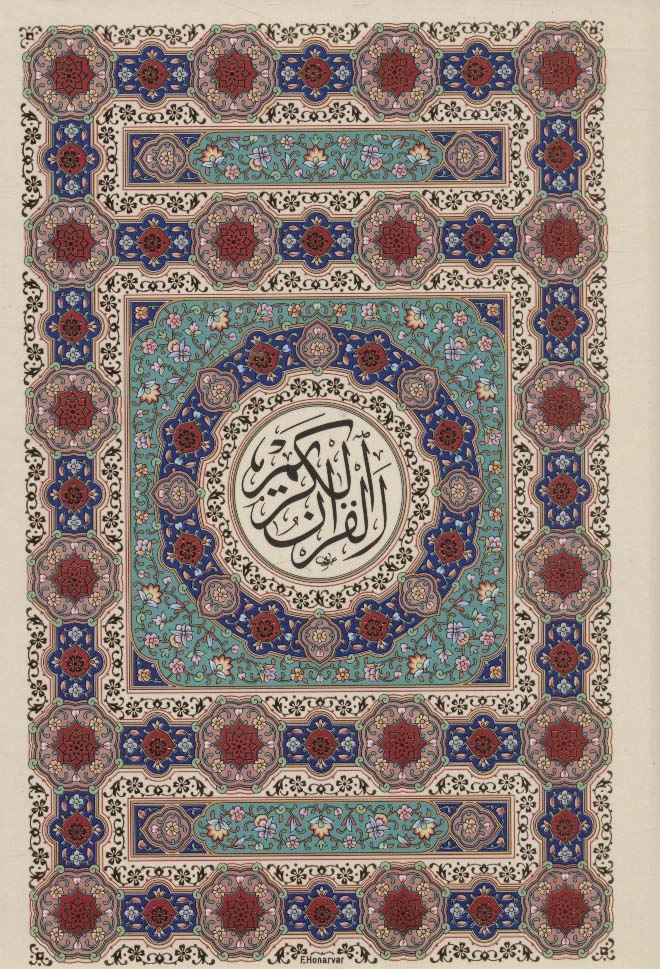 القرآن الكريم
E.Honarvar